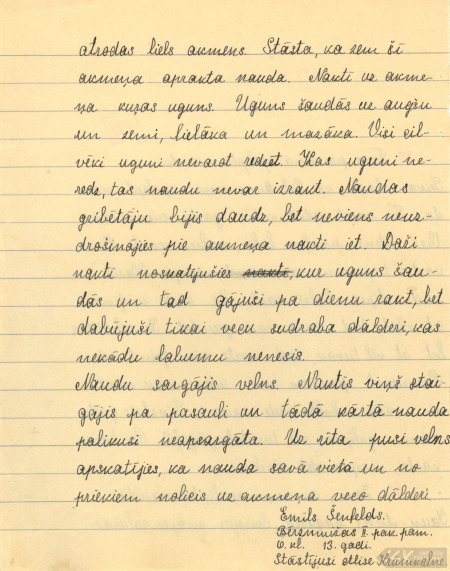 atrodas liels akmens. Stāsta, ka zem šī
akmeņa aprakta nauda. Naktī uz akme-
ņa kuŗas uguns. Uguns šaudās uz augšu
un zemi, lielāka un mazāka. Visi cil-
vēki uguni nevarot redzēt. Kas uguni ne-
redz, tas naudu nevar izrakt. Naudas
gribētāju bijis daudz, bet neviens neuz-
drošinājies pie akmeņa naktī iet. Daži
naktī noskatījušies nakti, kur uguns šau-
dās un tad gājuši pa dienu rakt, bet
dabūjuši tikai vecu sudraba dālderi, kas
nekādu labumu nenesis.
Naudu sargājis velns. Naktīs viņš stai-
gājis pa pasauli un tādā kārtā nauda
palikusi neapsargāta. Uz rīta pusi velns
apskatījies, ka nauda savā vietā un no
priekiem nolicis uz akmeņa veco dālderi.
Emīls Šenfelds.
Bērzmuižas II. pak. pam.
6. kl. 13. gadi.
Stāstījusi Alise